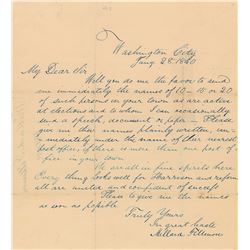 Washington City
Jany 28 1840
My Dear Sir
Will you do me the favor to send
me immediately the names of 10 - 15 or 20
of such persons in your town as are active
at elections and to whom I can occasionally
send a speech, document or paper - Please
give me their names plainly written, and
immediately under the name of their nearest
post office, if there is more than one post of-
fice in your town.
We are all in fine spirits here
Every thing looks well for Harrison and reform
all are united and confident of success
Please to give me the names
as soon as possible
Truly Yours
In great haste
Millard Fillmore